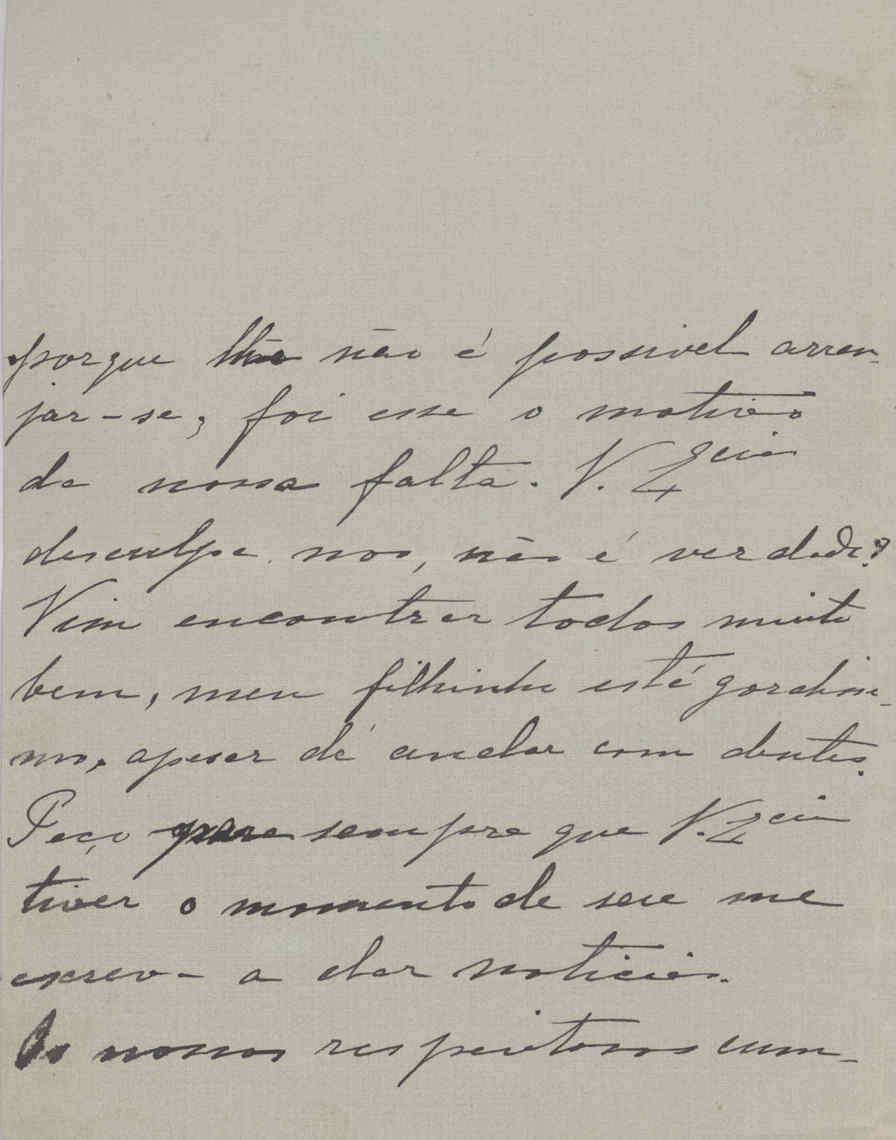 porque não é possivel arran-
jar-se, foi esse o motivo
da nossa falta. V. Excia
desculpa nos, não é verdade?
Vim encontrar todos muito
bem, meu filhinho está gordissi-
mo, apesar de andar com dentes.
Peço para sempre que V. Excia
tiver o momento de seu me
escreva a dar noticias.
Os nossos respeitosos cum-